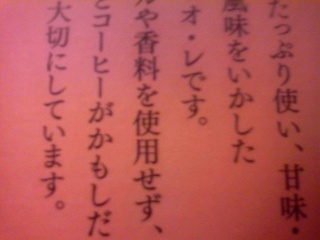 たっぷり使い、甘味・
風味をいかした
オ・レです。
ルや香料を使用せず、
とコーヒーがかもしだ
大切にしています。